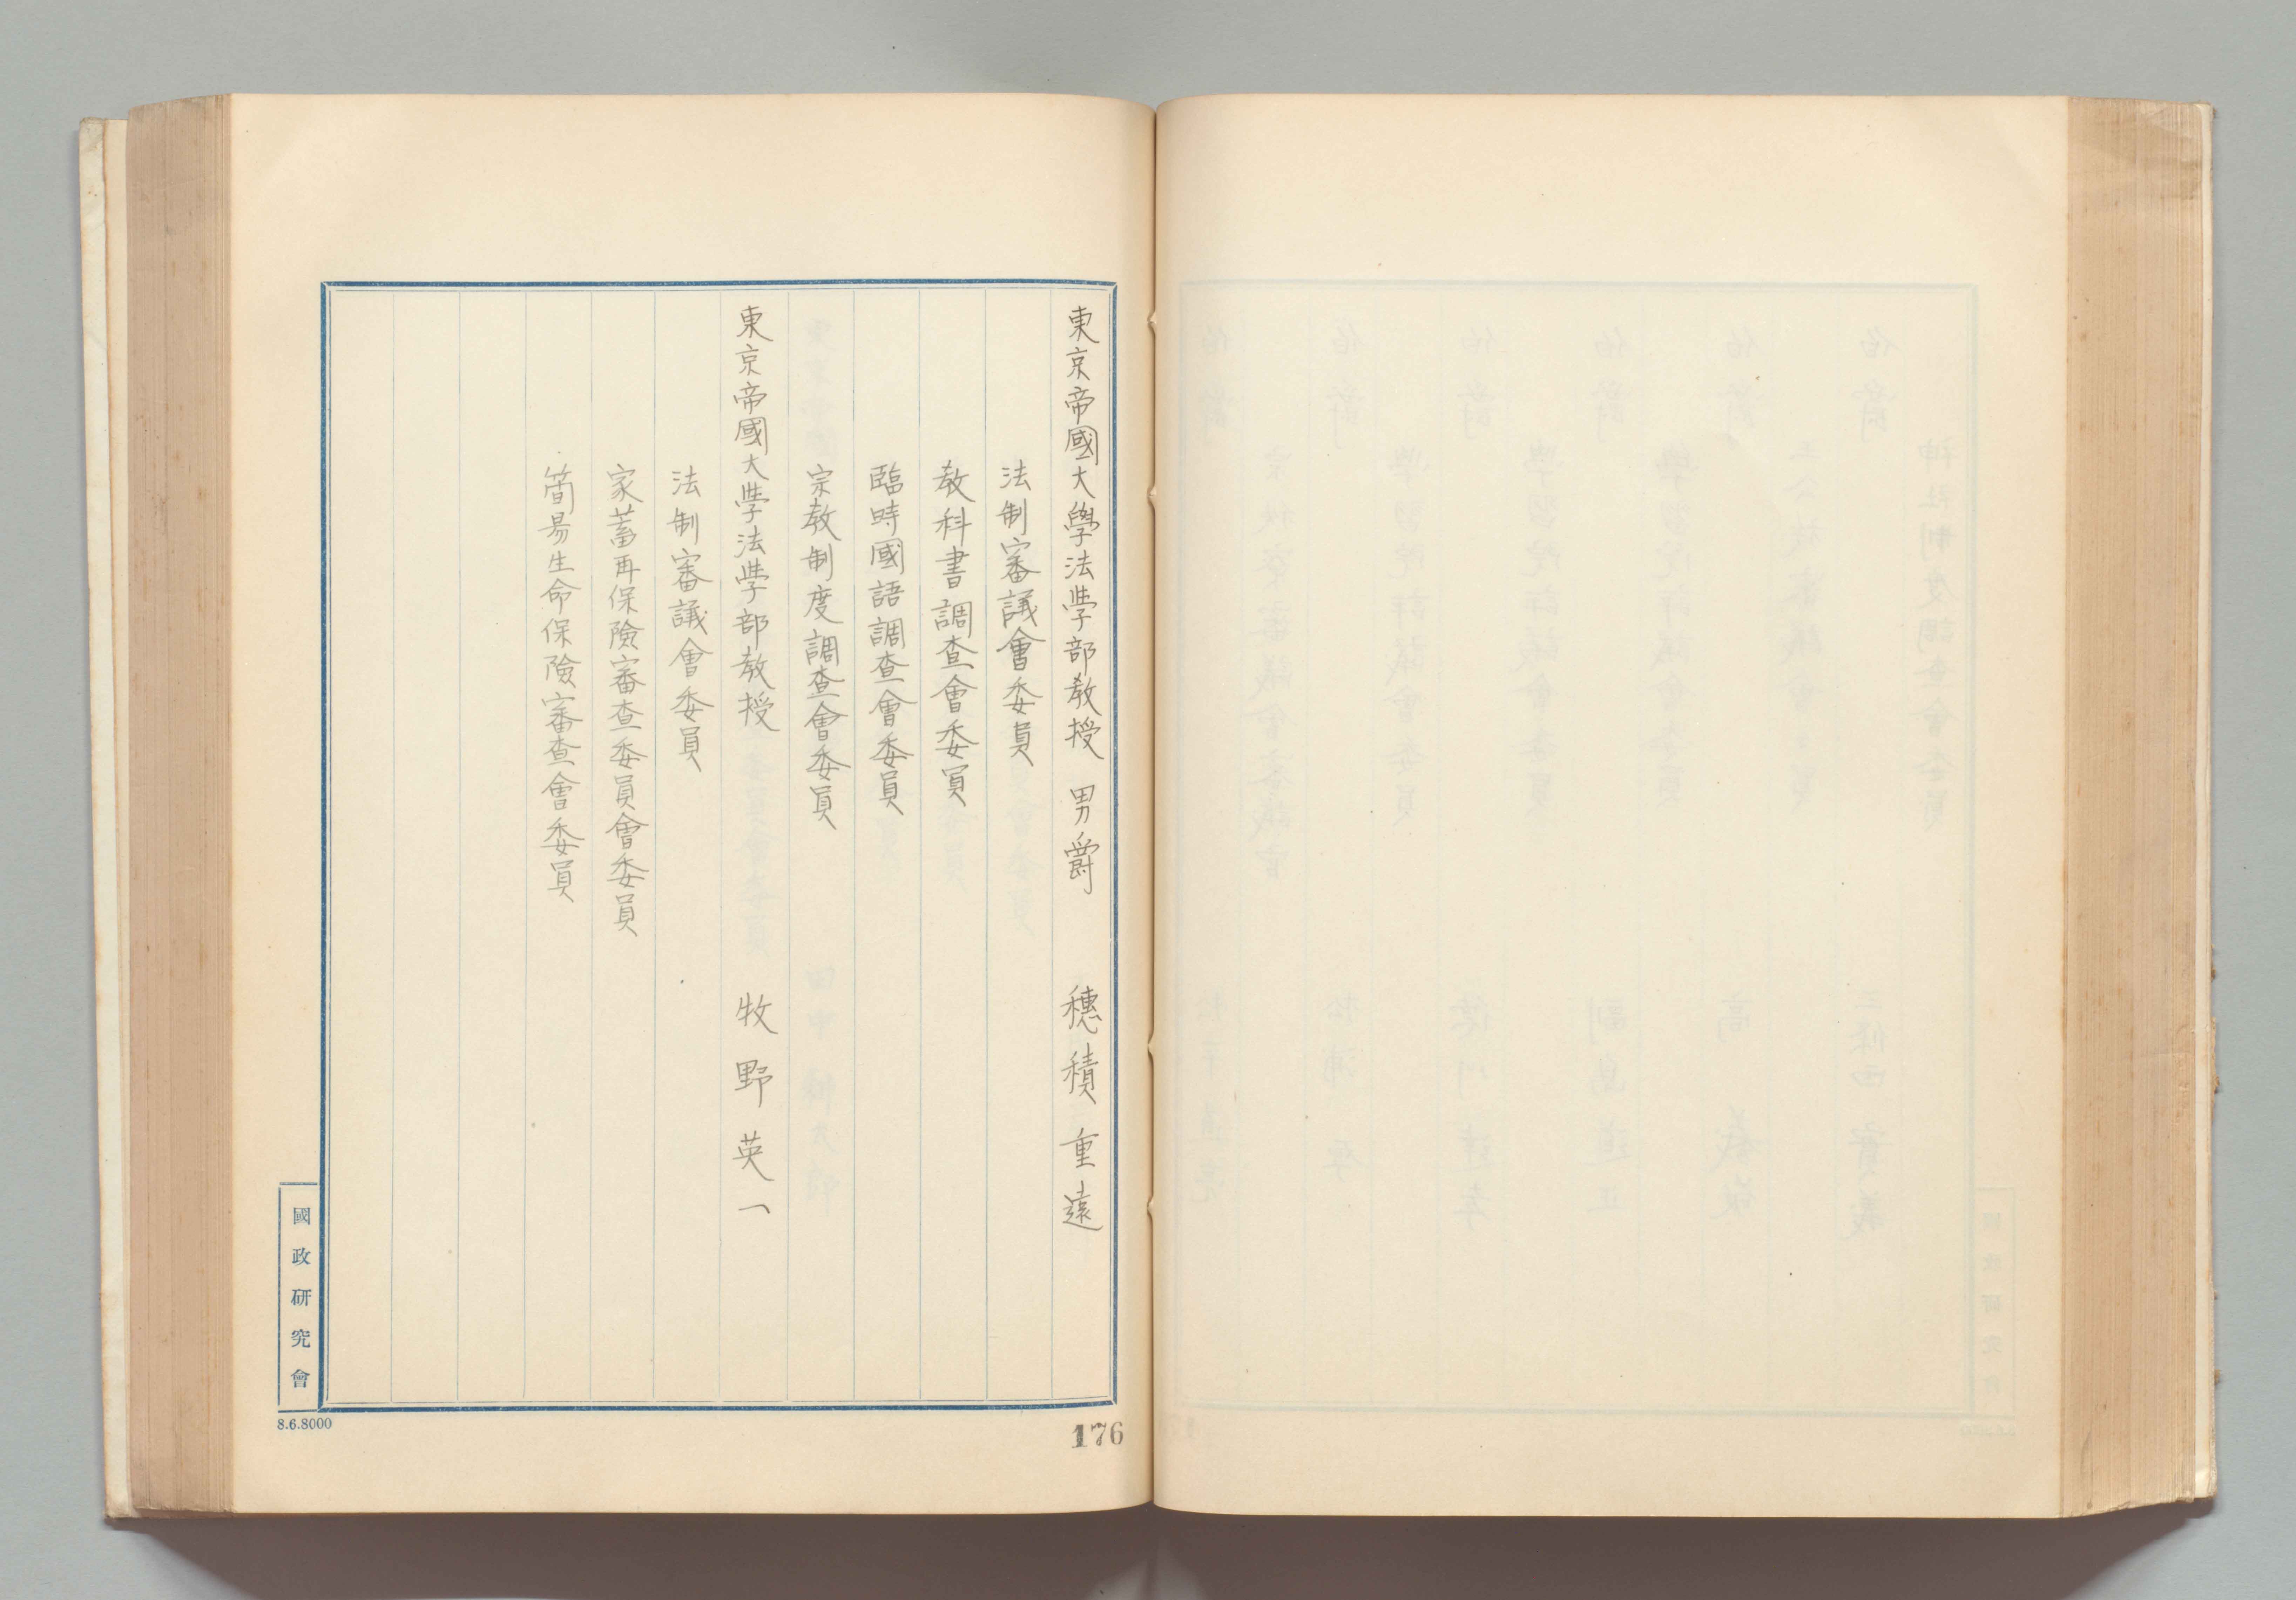 東京帝國大學法学部教授 男爵 穗積重遠
法制審議會委員
教科書調査會委員
臨時國語調査會委員
宗教制度調査會委員
東京帝國大学法学部教授 牧野英一
法制審議會委員
家畜再保險審査委員會委員
簡易生命保險審査會委員
國政研究會
8.6.8000
176